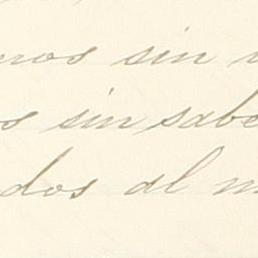 mos sin
s sin sabe
dos al m